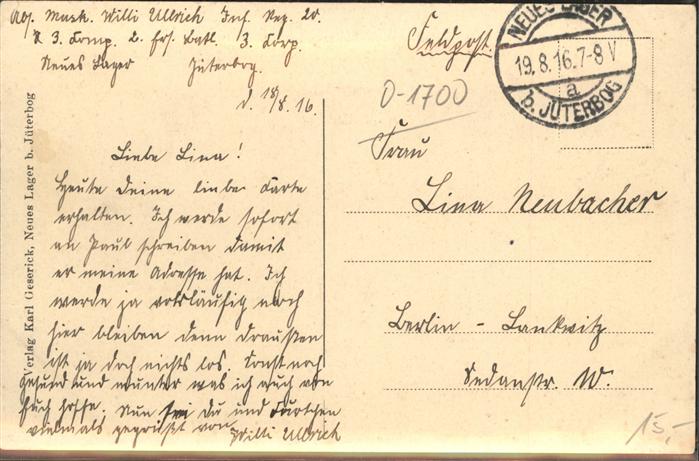 Abs. Musk. Willi Ullrich Inf. Reg. 20.
3. Komp. 2. Ers. Batl. 3. Korp.
Neues Lager Jüterbog.
d. 18/8. 16.
Liebe Lina!
Heute deine liebe Karte
erhalten. Ich werde sofort
an Paul schreiben damit
er meine Adresse hat. Ich
werde ja vorläufig noch
hier bleiben denn draußen
ist ja doch nichts los. Sonst noch
gesund und munter was ich auch von
Euch hoffe. Nun sei du und
vielmals gegrüßt von Willi Ullrich
Verlag Karl Geserick, Neues Lager b. Jüterbog
Feldpost.
NEUES LAGER
19.8.16.7-8V
a
b. JÜTERBOG
O-1700
Frau
Lina Neubacher
Berlin - Lankwitz
Sedanstr. W.
15,-